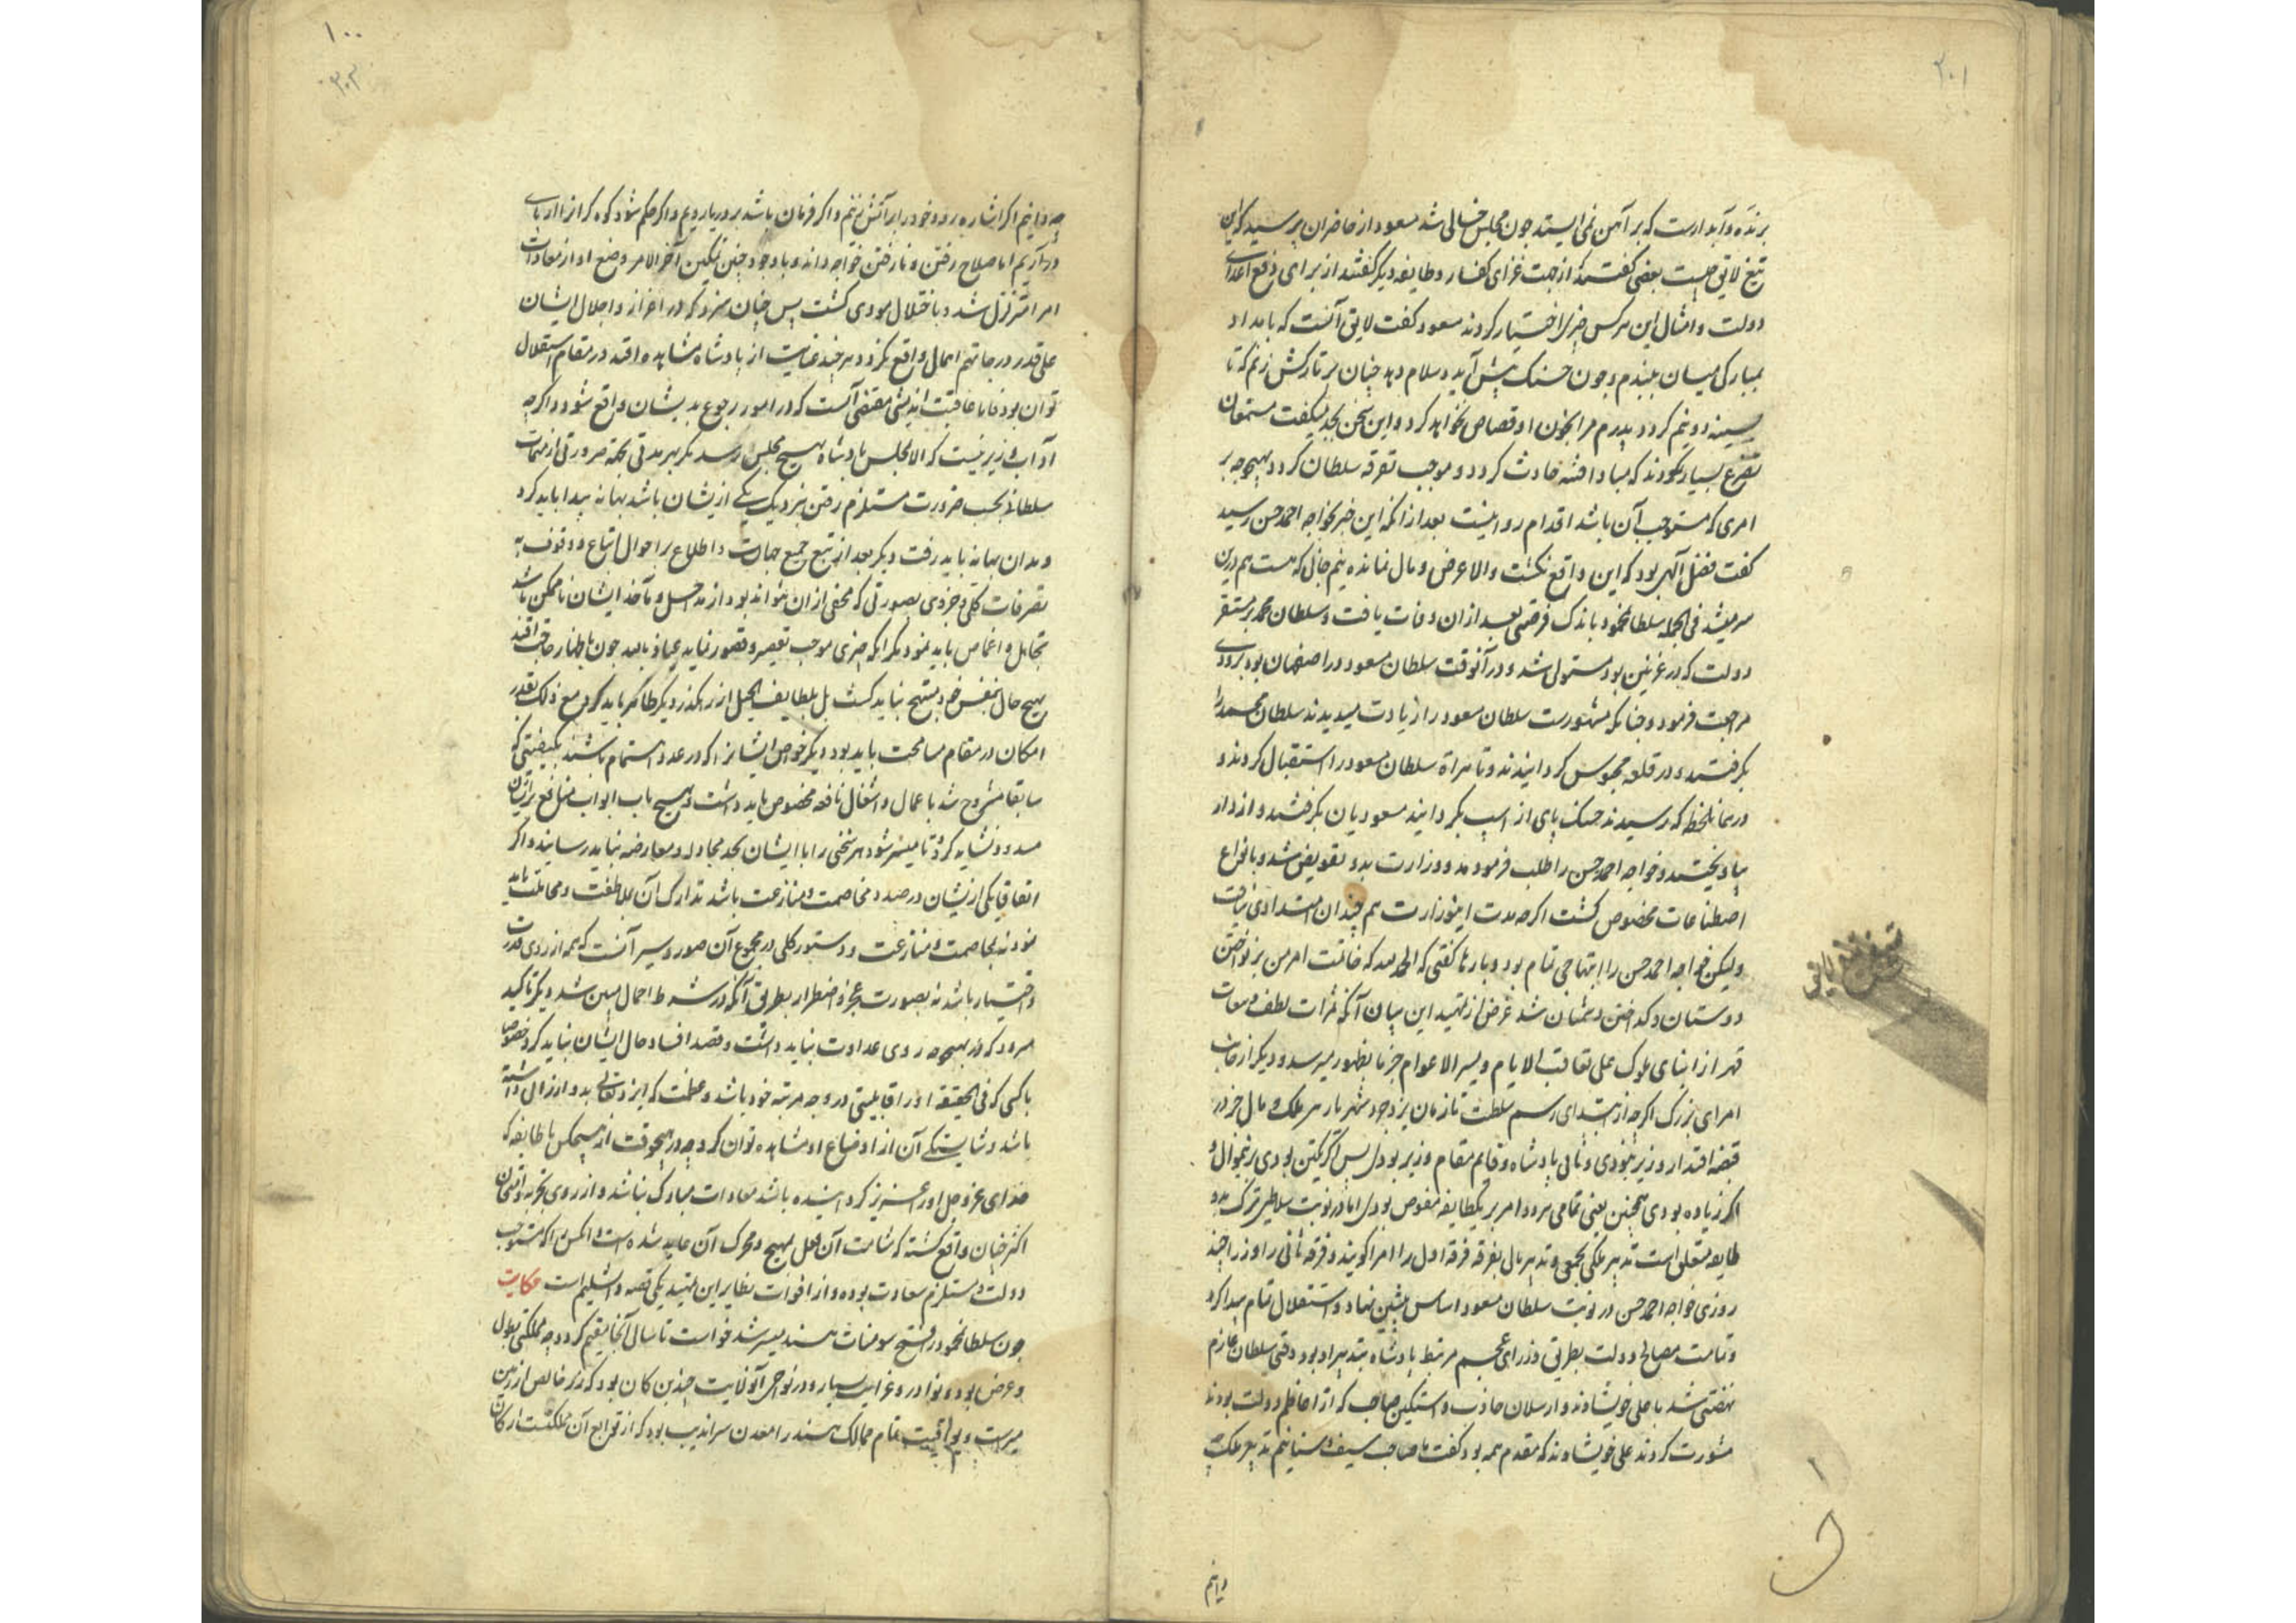 ۲۰۱
برنده و آبدارست که بر آهن نمی ایستد چون مجلس خالی شد مسعود از حاضران پرسید که این
تیغ لایق چیست بعضی گفتند که از جهت غزای کفار و طایفه دیگر گفتند از برای دفع اعدای
دولت و امثال این هر کس چیزی اختیار کردند مسعود گفت لایق آنست که بامداد
بمبارکی میان ببندم و چون حسنک پیش آید و سلام دهد چنان بر تارکش زنم که تا
بسینه دو نیم گردد پدرم مرا بخون او قصاص نخواهد کرد و این سخن بجد میگفت مستمعان
تضرع بسیار نمودند که مبادا فتنه حادث گردد و موجب تفرقه سلطان گردد بهیچوجه بر
امری که مستوجب آن باشد اقدام روا نیست بعد از آنکه این خبر بخواجه احمد حسن رسید
گفت فضل آلهی بود که این واقع نگشت والا عرض و مال نمانده نیم جانی که هست هم درین
سر میشد فی الجمله سلطان محمود باندک فرصتی بعد از ان وفات یافت و سلطان محمد بر مستقر
دولت که در غزنین بود مستولی شد و در آنوقت سلطان مسعود در اصفهان بود بزودی
مراجعت فرمود و چنانکه مشهورست سلطان مسعود را زیادت میدیدند سلطان محمد را
بگرفتند و در قلعه محبوس گردانیدند و تا هراة سلطان مسعود را استقبال کردند و
در همان لحظه که رسیدند حسنک پای از اسب بگردانید مسعودیان بگرفتند و از دار
بیاویختند و خواجه احمد حسن را طلب فرمودند و وزارت بدو تفویض شد و بانواع
اصطناعات مخصوص گشت اگرچه مدت این وزارت هم چندان امتدادی نیافت
ولیکن خواجه احمد حسن را ابتهاجی تمام بود و بارها گفتی که الحمد لله که خاتمت امر من بر نواختن
دوستان و گداختن دشمنان شد غرض از تمهید این بیان آنکه ثمرات لطف و معادات
قهر از ابنای ملوک علی تعاقب الایام و سیر الاعوام جزما بظهور میرسد و دیگر از جانب
امرای بزرگ اگرچه از ابتدای رسم سلطنت تا زمان یزدجرد شهریار هر ملک و مال جز در
قبضه اقتدار وزیر نبودی و ثانی پادشاه و قایم مقام وزیر بودی پس اگر یکتن بودی بر منوال و
اگر زیاده بودی همچنین یعنی تمامی هر دو امر بر یکطایفه مفوض بودی اما در نوبت سلاطین ترک بدو
طایفه متعلق است تدبیر ملک بجمعی و تدبیر مال بفرقه فرقه اول را امرا گویند و فرقه ثانی را وزرا چند
روزی خواجه احمد حسن در نوبت سلطان مسعود اساس پیشین نهاد و استقلال تمام پیدا کرد
و تمامت مصالح دولت بطریق وزرای عجم مرتبط پادشاه بتدبیر او بود وقتی سلطان عازم
نهضتی شد با علی خویشاوند و ارسلان جاذب و استکین حاجب که از اعاظم دولت بودند
مشورت کردند علی خویشاوند که مقدم همه بود گفت ما صاحب سیف و سنانیم تدبیر ملک
۱۰۰
۳۰۲
چه دانیم اگر اشاره رود خود را بر آتش زنیم و اگر فرمان باشد بر دریا رویم و اگر حکم شود کوه گران از پای
در آریم اما صلاح رفتن و نارفتن خواجه داند و با وجود چنین تمکین آخر الامر وضع او از معادات
امرا متزلزل شد و باختلال مودی گشت پس چنان سزد که در اعزاز و اجلال ایشان
علی قدر درجاتهم اهمال واقع نگردد هرچند عنایت از پادشاه مشاهده افتد در مقام استقلال
توان بود فاما عاقبت اندیشی مقتضی آنست که در امور رجوع بدیشان واقع شود و اگرچه
آداب وزیر نیست که الا بمجلس پادشاه بهیچ مجلس رسد مگر بهر مدتی بحکم ضرورتی از مهمات
سلطانی بحسب ضرورت مستلزم رفتن بنزدیک یکی از یشان باشد بهانه پیدا باید کرد
و بدان بهانه باید رفت دیگر بعد از تتبع جمیع جهات و اطلاع بر احوال اتباع و وقوف به
تصرفات کلی و جزوی بصورتی که مخفی از ان نتواند بود از مداخل و مآخذ ایشان ناممکن باشد
تجاهل و اغماض باید نمود مگر آنکه چیزی موجب تقصیر و قصور نماید عیاذ بالله چون باظهار حاجت افتد
بهیچ حال بنفس خود متقبح نباید گشت بل بلطایف الحیل از رهگذر دیگر ظاهر باید کرد و مع ذلک بقدر
امکان در مقام مسامحت باید بود دیگر خواص ایشانرا که در عدد اهتمام باشند بکیفیتی که
سابقا مشروح شد باعمال و اشغال نافعه مخصوص باید داشت و بهیچ باب ابواب منافع بر ایشان
مسدود نشاید کرد و تا میسر شود هر سخنی را با ایشان بحد مجادله و معارضه نباید رسانید و اگر
اتفاقا یکی از یشان در صدد مخاصمت و منازعت باشد تدارک آن بملاطفت و مجاملت باید
نمود نه بمخاصمت و منازعت و دستور کلی در مجموع آن صور و سیر آنست که همه از روی قدرت
و اختیار باشد نه بصورت عجز و اضطرار بطریق آنکه در شروط اجمال مبین شد دیگر تاکید
میرود که در بهیچوجه روی عداوت نباید داشت و قصد افساد حال ایشان نباید کرد خصوصا
با کسی که فی الحقیقه او را قابلیتی در وجه مرتبه خود باشد و عظمت که ایزد تعالی بدو ارزانی داشته
باشد و شایستگی آن از اوضاع او مشاهده توان کرد چه در هیچوقت از هیچکس با طایفه که
خدای عز و جل او را عزیز گردانیده باشد معادات مبارک نباشد و از روی تجربه و امتحان
اکثر چنان واقع گشته که شامت آن فعل بمهیج و محرک آن عاید شده است و العکس اکثر مستوجب
دولت و مستلزم سعادت بوده و از اخوات نظایر این تمهید یکی قصه دابشلیم است حکایت
چون سلطان محمود را فتح سومنات هند میسر شد خواست تا سالی آنجا مقیم گردد چه مملکتی بطول
و عرض بود و نوادر و غرایب بسیار و در نواحی آنولایت چندین کان بود که زر خالص از زمین
میرست و یواقیت تمام ممالک هند را معدن سراندیب بود که از توابع آن مملکتست ارکان